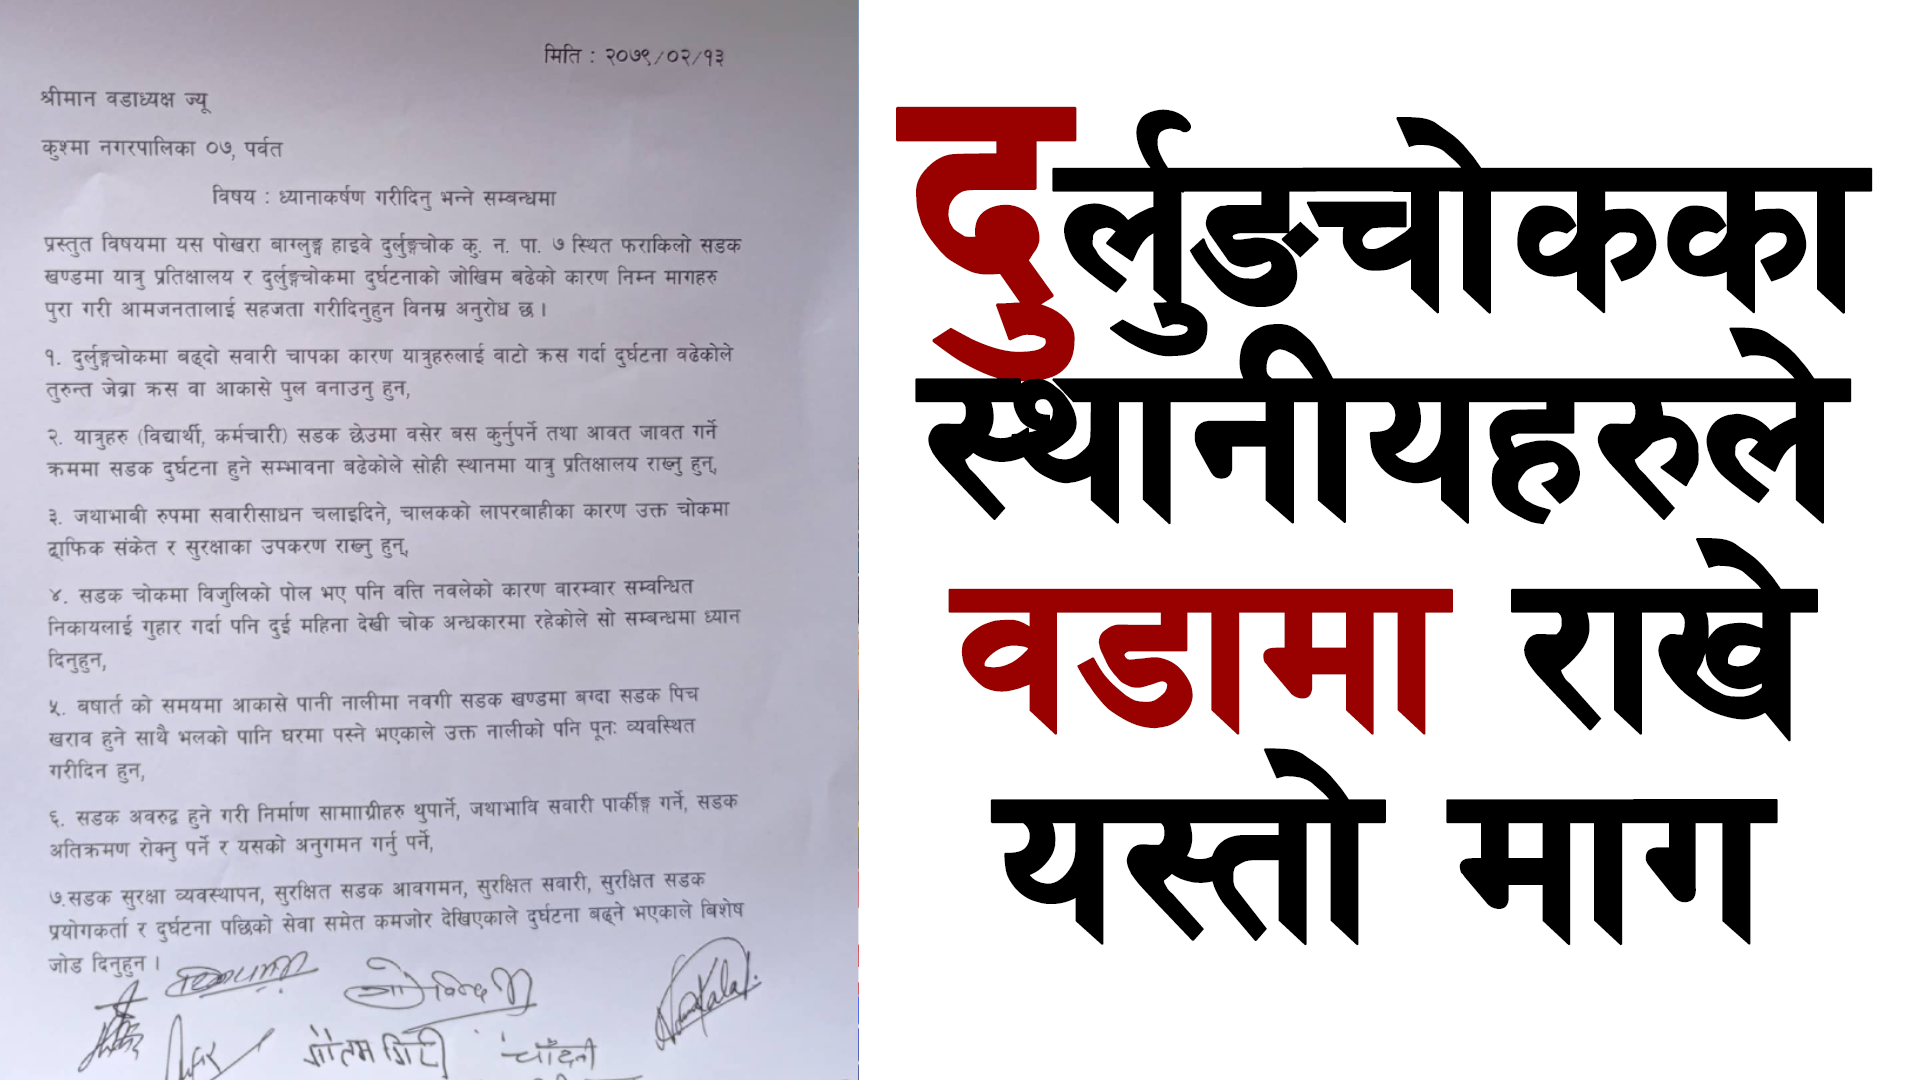 मिति : २०७९/०२/१३
श्रीमान वडाध्यक्ष ज्यू
कुश्मा नगरपालिका ०७, पर्वत
विषय : ध्यानाकर्षण गरीदिनु भन्ने सम्बन्धमा
प्रस्तुत विषयमा यस पोखरा बाग्लुङ्ग हाइवे दुर्लुङ्गचोक कु. न. पा. ७ स्थित फराकिलो सडक
खण्डमा यात्रु प्रतिक्षालय र दुर्लुङ्गचोकमा दुर्घटनाको जोखिम बढेको कारण निम्न मागहरु
पुरा गरी आमजनतालाई सहजता गरीदिनुहुन विनम्र अनुरोध छ ।
१. दुर्लुङ्गचोकमा बढ्दो सवारी चापका कारण यात्रुहरुलाई वाटो क्रस गर्दा दुर्घटना वढेकोले
तुरुन्त जेब्रा क्रस वा आकासे पुल वनाउनु हुन,
२. यात्रुहरु (विद्यार्थी, कर्मचारी) सडक छेउमा वसेर बस कुर्नुपर्ने तथा आवत जावत गर्ने
क्रममा सडक दुर्घटना हुने सम्भावना बढेकोले सोही स्थानमा यात्रु प्रतिक्षालय राख्नु हुन्,
३. जथाभाबी रुपमा सवारीसाधन चलाइदिने, चालकको लापरबाहीका कारण उक्त चोकमा
ट्राफिक संकेत र सुरक्षाका उपकरण राख्नु हुन्,
४. सडक चोकमा विजुलिको पोल भए पनि वत्ति नवलेको कारण वारम्वार सम्वन्धित
निकायलाई गुहार गर्दा पनि दुई महिना देखी चोक अन्धकारमा रहेकोले सो सम्बन्धमा ध्यान
दिनुहुन,
५. बषार्त को समयमा आकासे पानी नालीमा नवगी सडक खण्डमा बग्दा सडक पिच
खराव हुने साथै भलको पानि घरमा पस्ने भएकाले उक्त नालीको पनि पूनः व्यवस्थित
गरीदिन हुन,
६. सडक अवरुद्ध हुने गरी निर्माण सामााग्रीहरु थुपार्ने, जथाभावि सवारी पार्कीङ्ग गर्ने, सडक
अतिक्रमण रोक्नु पर्ने र यसको अनुगमन गर्नु पर्ने,
७.सडक सुरक्षा व्यवस्थापन, सुरक्षित सडक आवगमन, सुरक्षित सवारी, सुरक्षित सडक
प्रयोगकर्ता र दुर्घटना पछिको सेवा समेत कमजोर देखिएकाले दुर्घटना बढ्ने भएकाले बिशेष
जोड दिनुहुन ।
गौतम गिरी
चाँदनी
दुर्लुङचोकका
स्थानीयहरुले
वडामा राखे
यस्तो माग